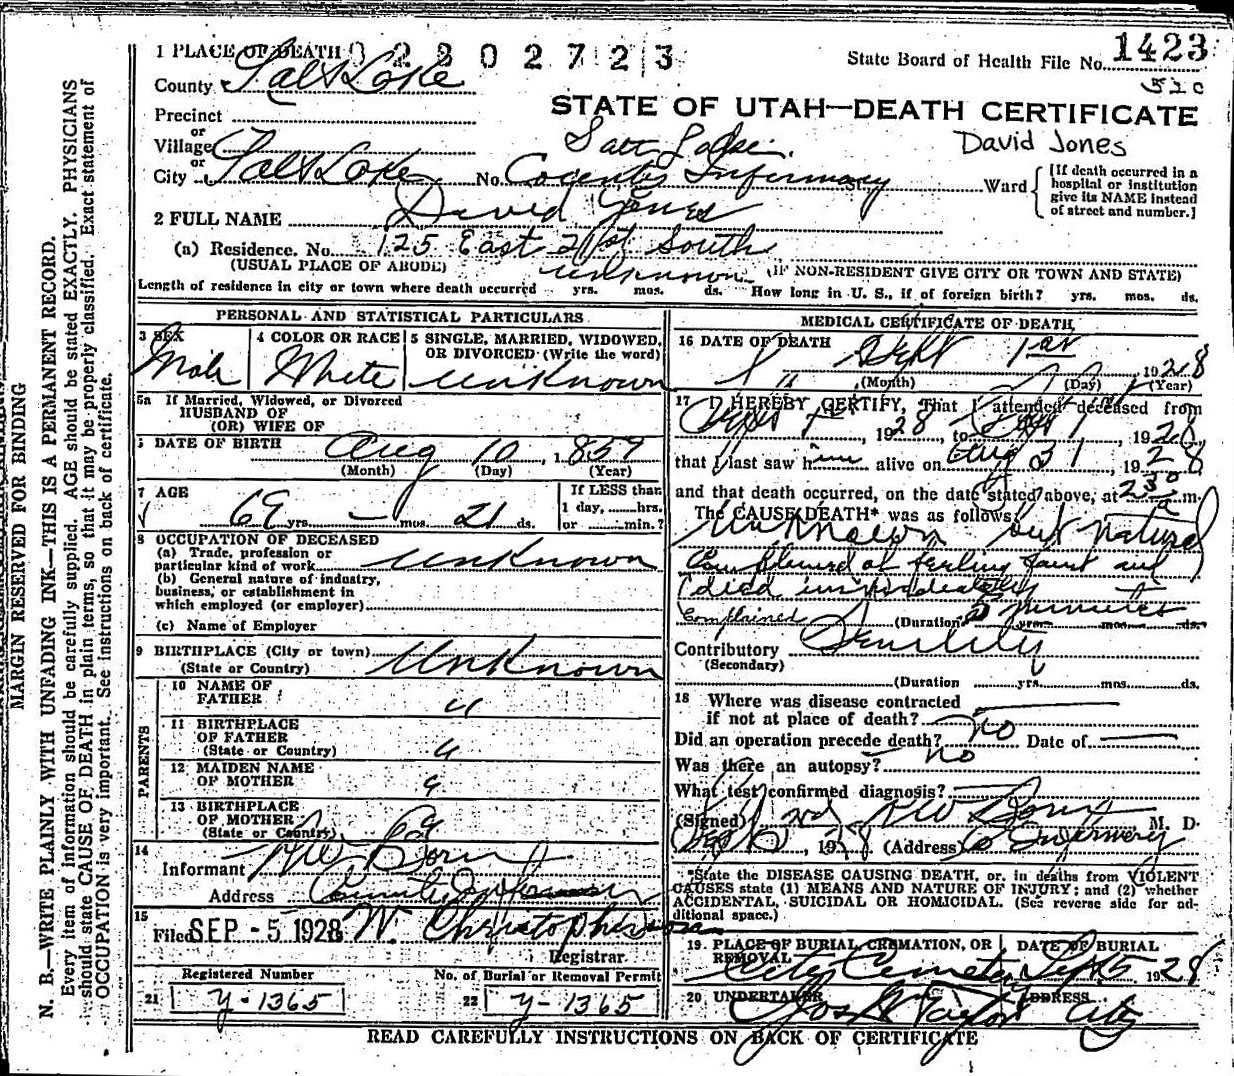 1 PLACE OF DEATH 0 2 2 0 2 7 2 3
State Board of Health File No. 1423
52c
County Salt Lake
STATE OF UTAH—DEATH CERTIFICATE
Precinct
or
Village
David Jones
Salt Lake
or
City Salt Lake No. County Infirmary St. Ward
[If death occurred in a hospital or institution give its NAME instead of street and number.]
2 FULL NAME David Jones
(a) Residence. No. 125 East 21st South
(USUAL PLACE OF ABODE) (IF NON-RESIDENT GIVE CITY OR TOWN AND STATE)
unknown
Length of residence in city or town where death occurred yrs. mos. ds. How long in U. S., if of foreign birth? yrs. mos. ds.
PERSONAL AND STATISTICAL PARTICULARS
3 SEX 4 COLOR OR RACE 5 SINGLE, MARRIED, WIDOWED, OR DIVORCED (Write the word)
Male White unknown
5a If Married, Widowed, or Divorced
HUSBAND OF
(OR) WIFE OF
DATE OF BIRTH Aug 10, 1859
(Month) (Day) (Year)
7 AGE
69 yrs. — mos. 21 ds.
If LESS than
1 day, ......hrs.
or ......min.?
8 OCCUPATION OF DECEASED
(a) Trade, profession or
particular kind of work unknown
(b) General nature of industry,
business, or establishment in
which employed (or employer)
(c) Name of Employer
9 BIRTHPLACE (City or town)
(State or Country) unknown
PARENTS
10 NAME OF
FATHER "
11 BIRTHPLACE
OF FATHER
(State or Country) "
12 MAIDEN NAME
OF MOTHER "
13 BIRTHPLACE
OF MOTHER
(State or Country)
14
Informant
Address County Infirmary
15
Filed SEP - 5 1928 W. Christopherson
Registrar.
Registered Number No. of Burial or Removal Permit
21 y-1365 22 y-1365
MEDICAL CERTIFICATE OF DEATH
16 DATE OF DEATH
Sept 1st, 1928
(Month) (Day) (Year)
17 I HEREBY CERTIFY, That I attended deceased from
, 1928, to Sept 1, 1928
that I last saw him alive on Aug 31, 1928
and that death occurred, on the date stated above, at 2 30 a m.
The CAUSE DEATH* was as follows:
Unknown but natural
Complained of feeling faint and
died immediately
Complained (Duration 2 minutes yrs. mos. ds.
Contributory Senility
(Secondary)
(Duration yrs. mos. ds.
18 Where was disease contracted
if not at place of death?
Did an operation precede death? no Date of —
Was there an autopsy? no
What test confirmed diagnosis?
(Signed) M. D.
, 1928 (Address) Co Infirmary
*State the DISEASE CAUSING DEATH, or, in deaths from VIOLENT
CAUSES state (1) MEANS AND NATURE OF INJURY; and (2) whether
ACCIDENTAL, SUICIDAL OR HOMICIDAL. (See reverse side for ad-
ditional space.)
19. PLACE OF BURIAL, CREMATION, OR REMOVAL DATE OF BURIAL
City Cemetery Sept 5 1928
20 UNDERTAKER ADDRESS
Jos Wm Taylor City
READ CAREFULLY INSTRUCTIONS ON BACK OF CERTIFICATE
MARGIN RESERVED FOR BINDING
N. B.—WRITE PLAINLY WITH UNFADING INK—THIS IS A PERMANENT RECORD.
Every item of information should be carefully supplied. AGE should be stated EXACTLY. PHYSICIANS
should state CAUSE OF DEATH in plain terms, so that it may be properly classified. Exact statement of
OCCUPATION is very important. See instructions on back of certificate.